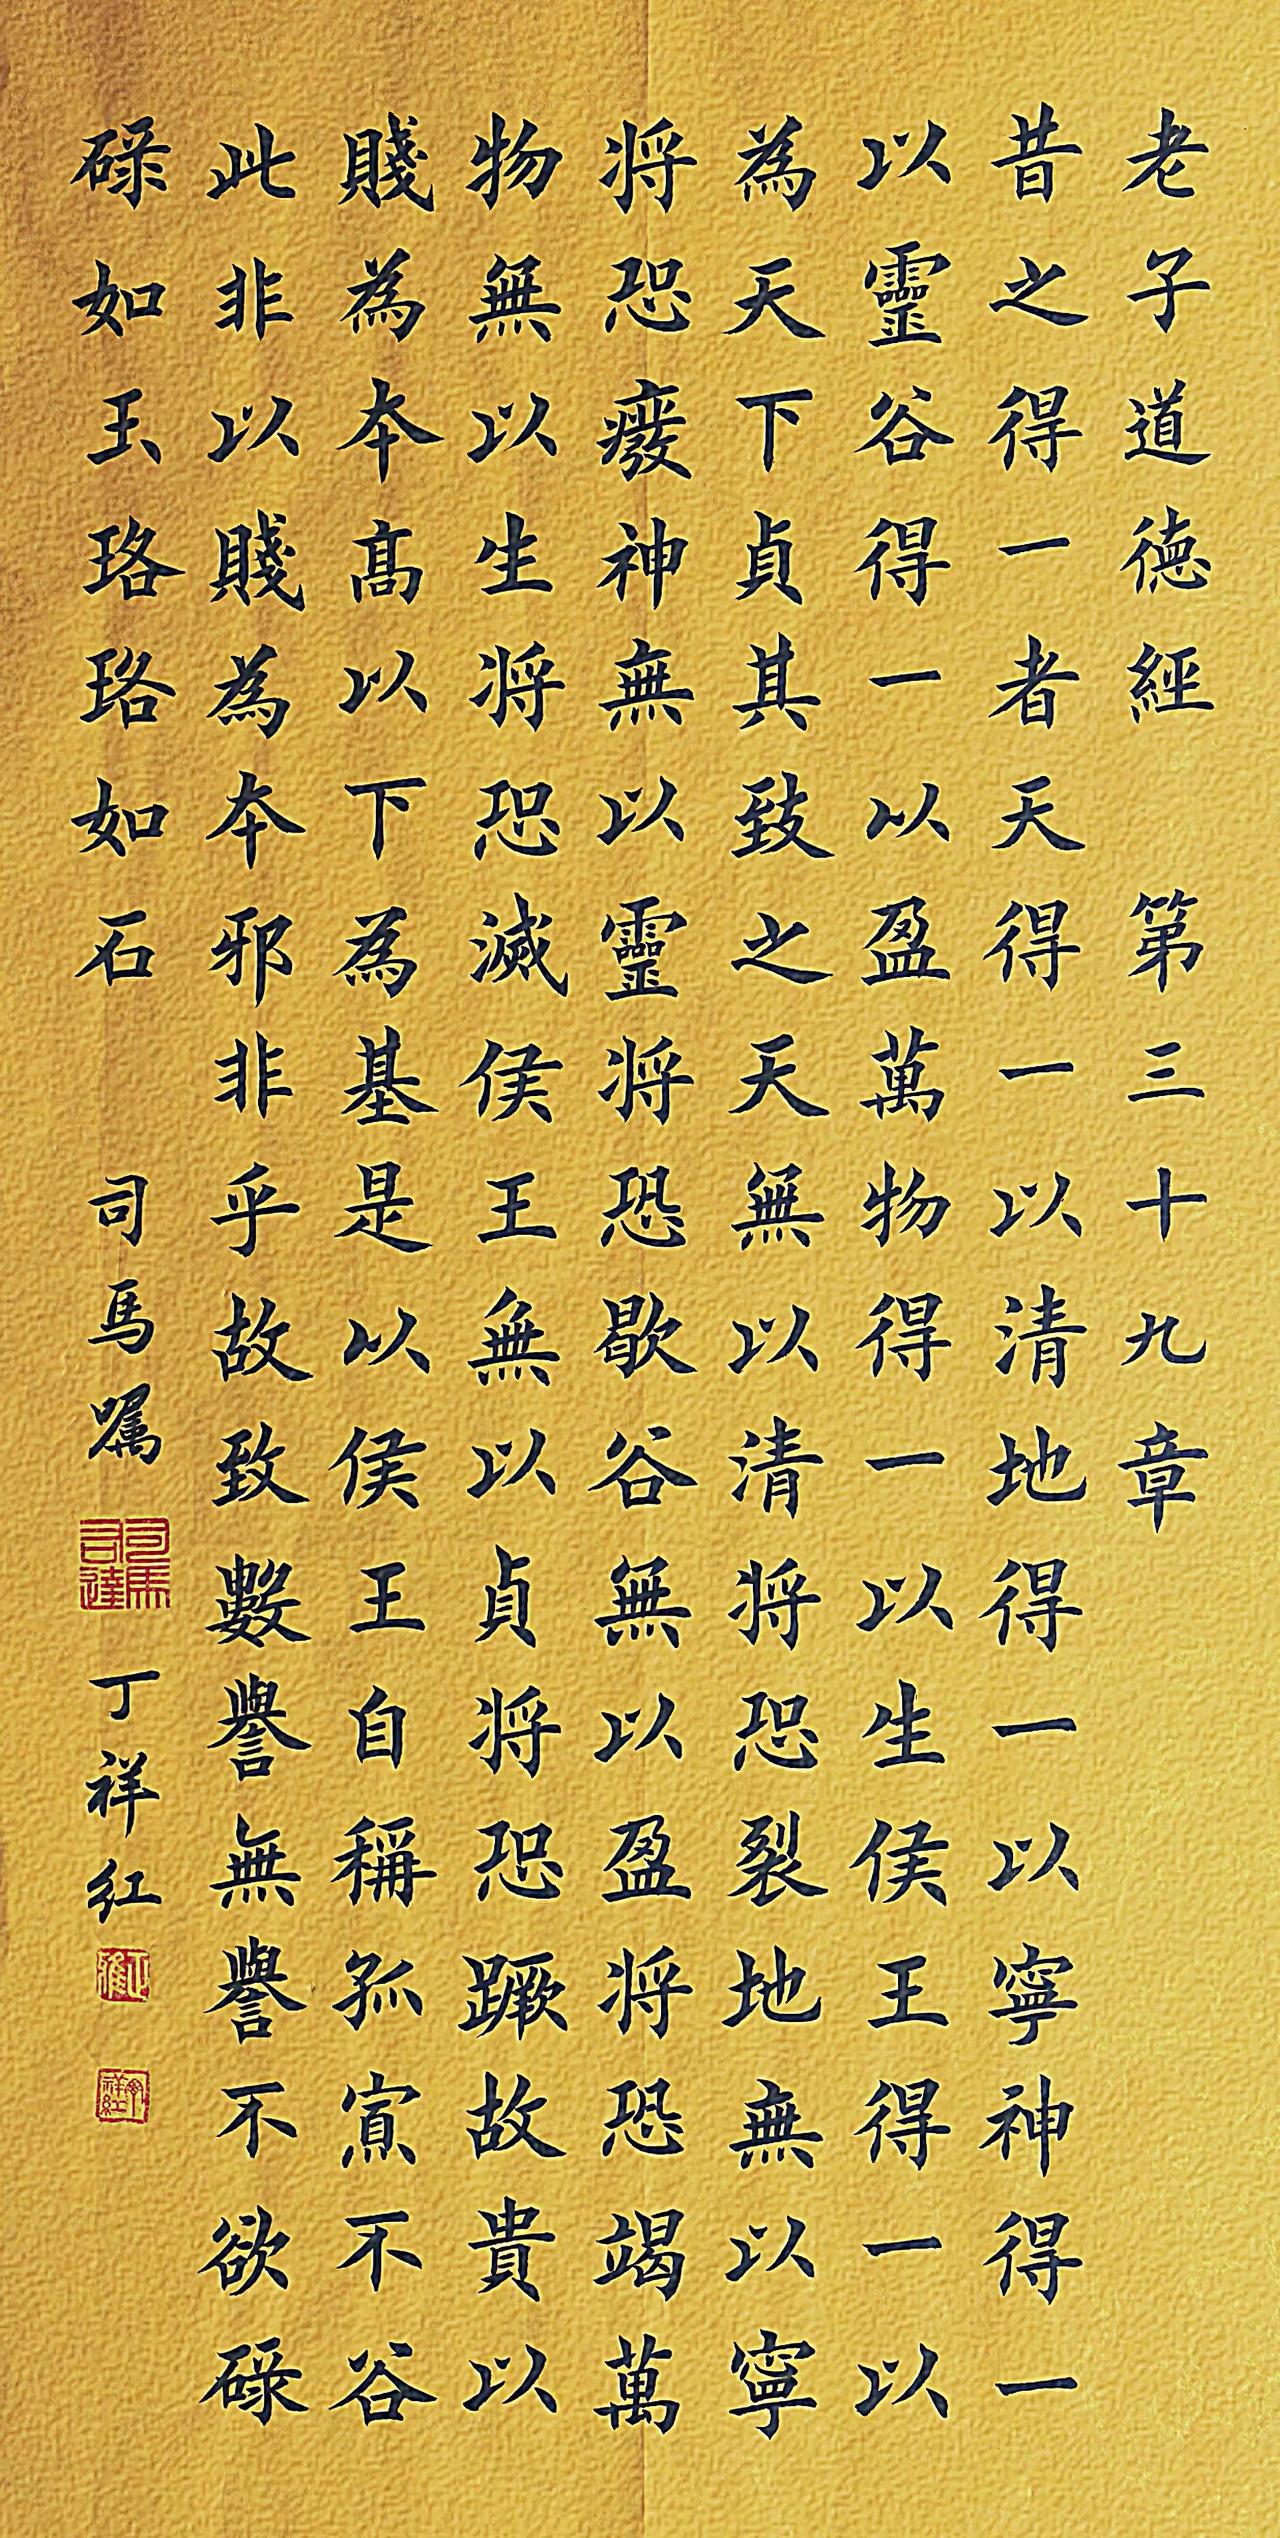 老子道徳經 第三十九章
昔之得一者天得一以清地得一以寧神得一
以靈谷得一以盈萬物得一以生侯王得一以
為天下貞其致之天無以清将恐裂地無以寧
将恐癈神無以靈将恐歇谷無以盈将恐竭萬
物無以生将恐滅侯王無以貞将恐蹶故貴以
賤為本髙以下為基是以侯王自稱孤寡不谷
此非以賤為本邪非乎故致數譽無譽不欲碌
碌如玉珞珞如石 司馬嘱 司馬司達 丁祥红